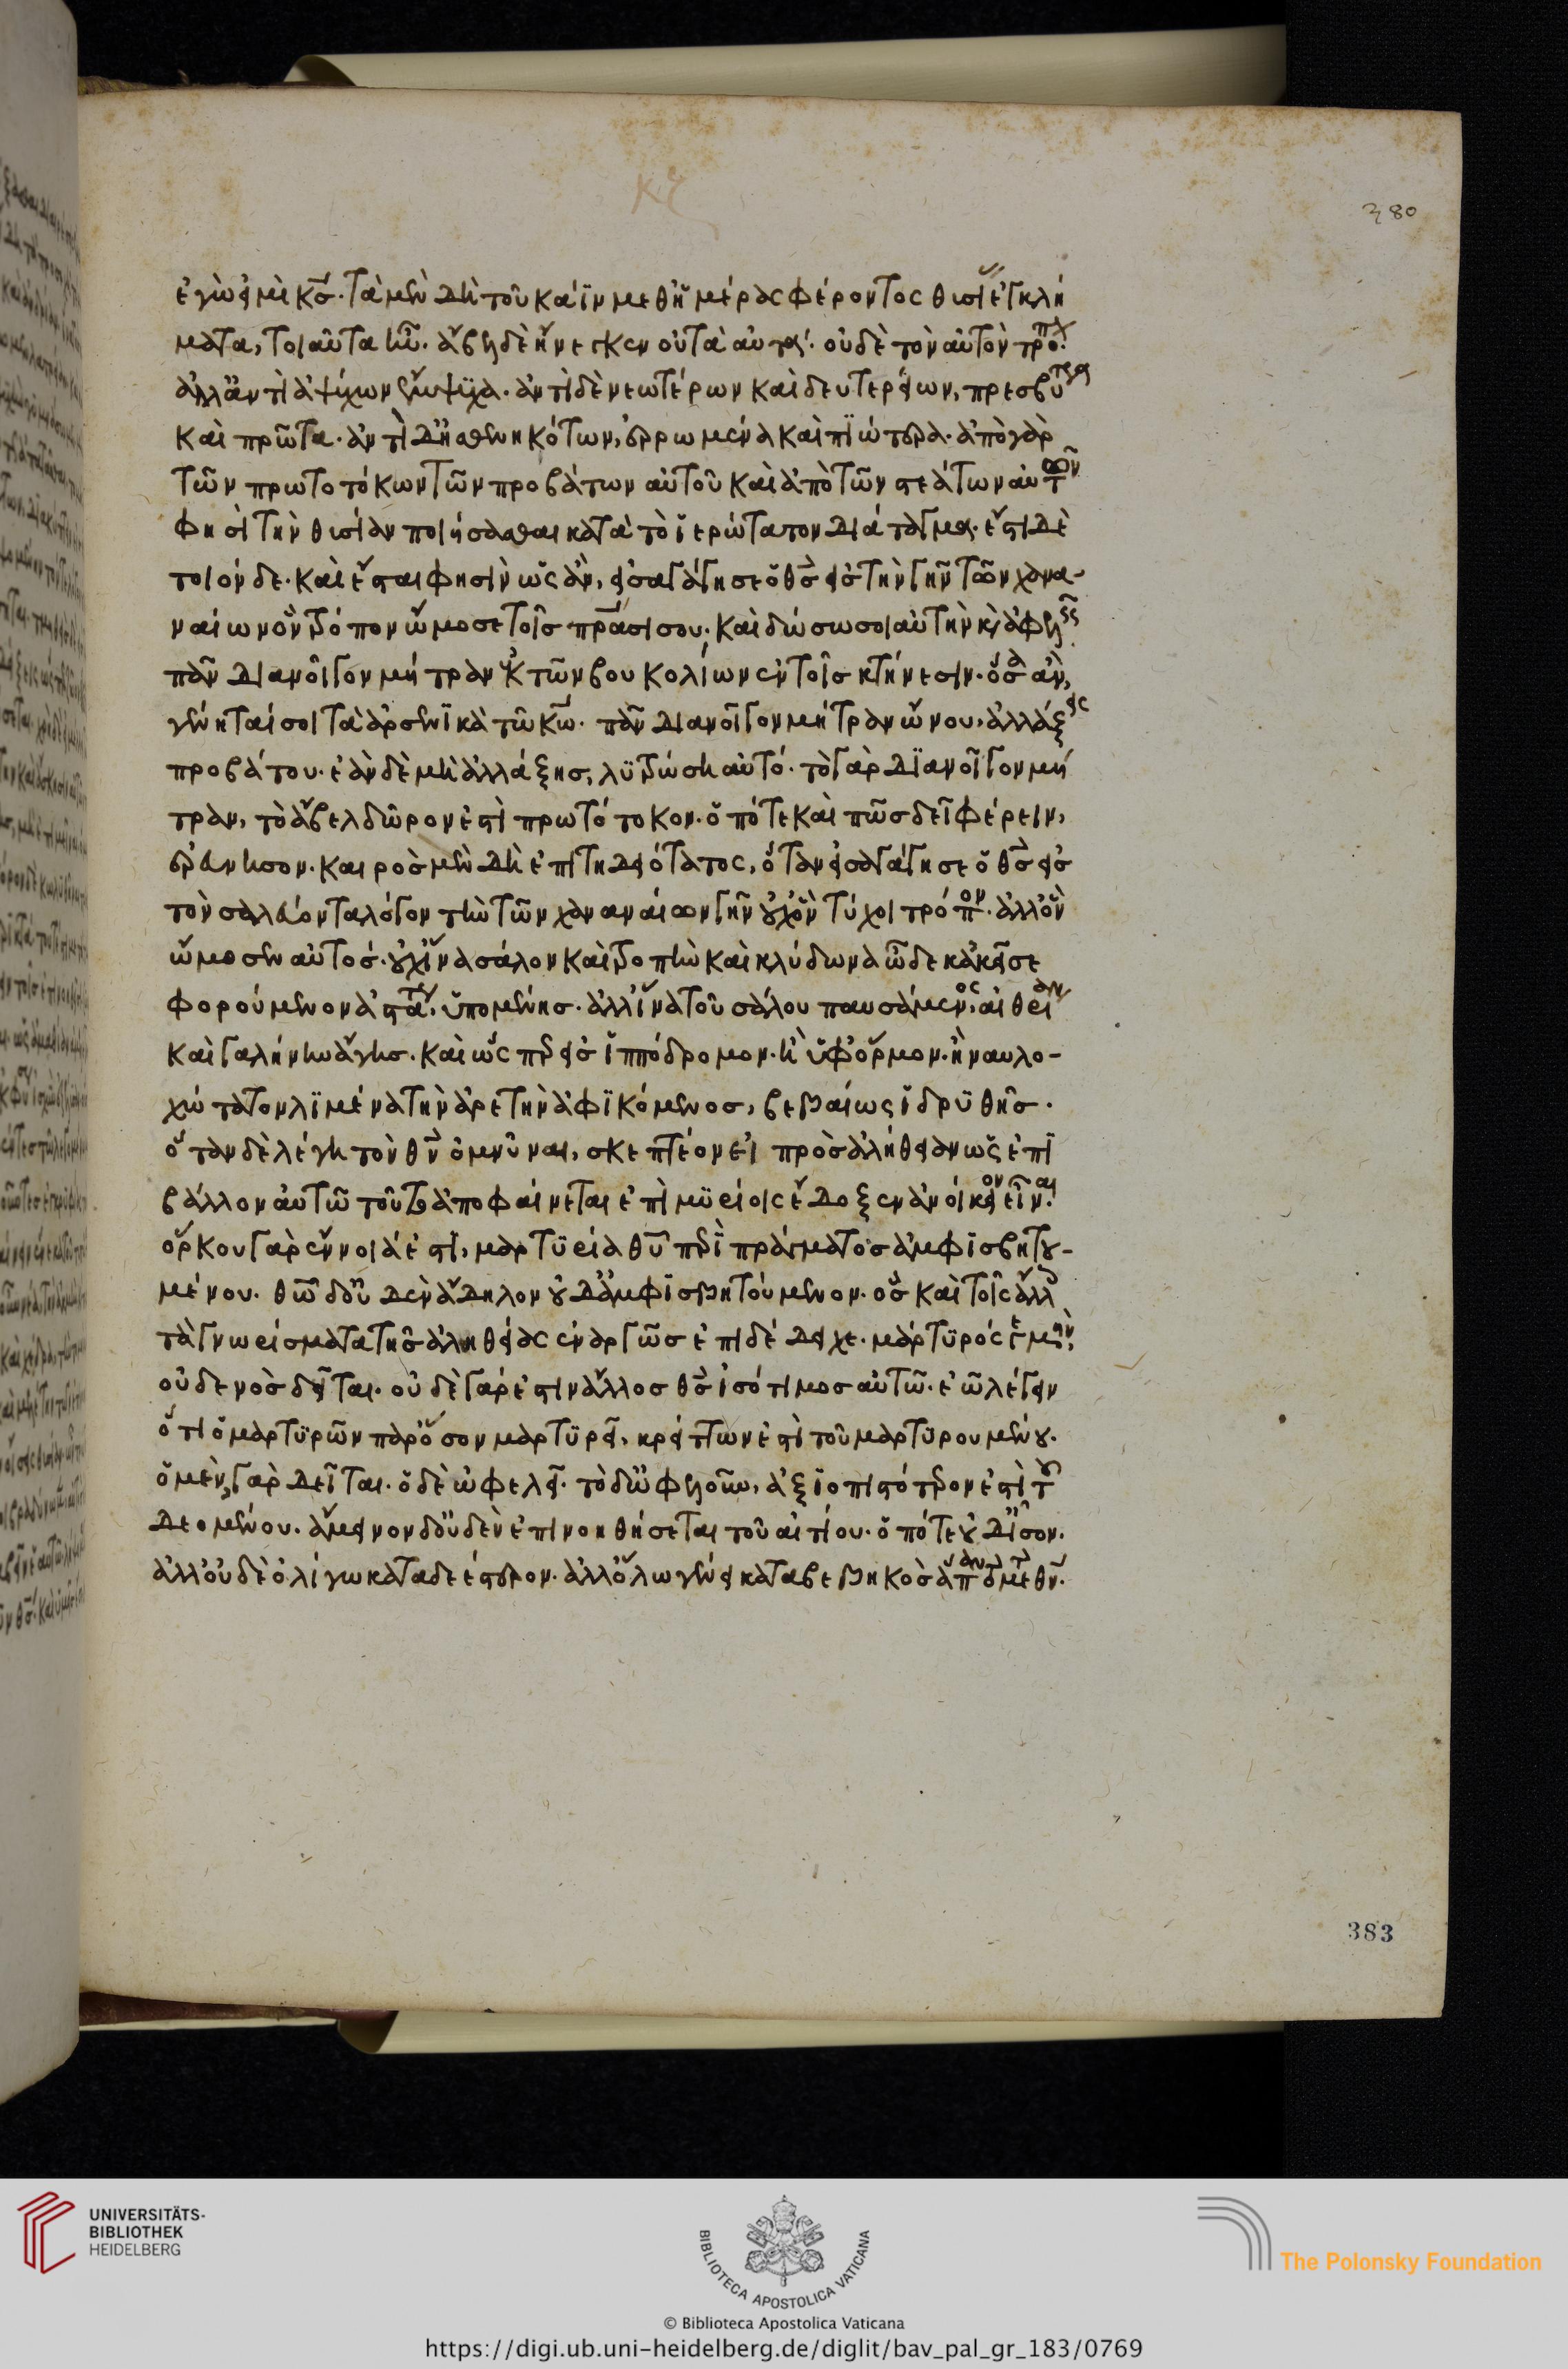 ἐγὼ εἰμὶ κς̅· τὰ μὲν δὴ τοῦ κάϊν μεθ' ἡμέρας φέροντος θυσί ἐγκλή
ματα, τοιαῦτα ἦν. ἄβελ δὲ ἤνεγκεν οὐ τὰ αὐτά· οὐδὲ τὸν αὐτὸν τρόπ.
ἀλλ' ἀντὶ ἀψύχων ἔμψυχα· ἀντὶ δὲ νεωτέρων καὶ δευτερείων, πρεσβύτερα
καὶ πρῶτα· ἀντὶ δ' ἠσθενηκότων, ἐρρωμένα καὶ πϊώτερα· ἀπὸ γὰρ
τῶν πρωτοτόκων τῶν προβάτων αὐτοῦ καὶ ἀπὸ τῶν στεάτων αὐτῶν
φησὶ τὴν θυσίαν ποιήσασθαι κατὰ τὸ ἱερώτατον διάταγμα· ἔστι δὲ
τοιόνδε· καὶ ἔσται φησὶν ὡς ἂν, εἰσαγάγη σε ὁ θς̅ εἰς τὴν γῆν τῶν χανα-
ναίων ὃν τρόπον ὤμοσε τοῖς πράσι σου· καὶ δώσω σοι αὐτὴν κ, ἀφελς
πᾶν διανοῖγον μήτραν ἐκ τῶν βουκολίων ἐν τοῖς κτήνεσιν· ὅσα ἂν,
γένηταί σοι τὰ ἀρσενϊκὰ τῶ κω̅· πᾶν διανοῖγον μήτραν ὤνου, ἀλλάξεις
προβάτου· ἐὰν δὲ μὴ ἀλλάξης, λϋτρώση αὐτό· τὸ γὰρ δϊανοῖγον μή
τραν, τὸ ἄβελ δῶρον ἐστὶ πρωτότοκον· ὁπότε καὶ πῶς δεῖ φέρειν,
ἐρεύνησον· καιρὸς μὲν δὴ ἐπιτηδειότατος, ὅταν εἰσαγάγη σε ὁ θς̅ εἰς
τὸν σαλεύοντα λόγον τὴν τῶν χαναναίων γῆν οὐχ ὃν τύχοι τρόπον· ἀλλ' ὃν
ὤμοσεν αὐτός· οὐχ ἵνα σάλον καὶ τροπὴν καὶ κλύδωνα ὧδε κἀκεῖσε
φορούμενον ἀστάτ, ὑπομένης· ἀλλ' ἵνα τοῦ σάλου παυσάμενος, αἰθρίαν
καὶ γαλήνην ἄγης· καὶ ὡς περ εἰς ἱππόδρομον· ἢ ὕφορμον· ἢ ναυλο-
χώτατον λϊμένα τὴν ἀρετὴν ἀφϊκόμενος, βεβαίως ἱδρϋθῆς.
ὅταν δὲ λέγη τὸν θν̅ ὀμνῦναι, σκεπτέον εἰ πρὸς ἀλήθειαν ὡς ἐπι
βάλλον αὐτῶ τοῦτο ἀποφαίνεται ἐπεὶ μϋρίοις ἔδοξεν ἀνοίκειον εἶναι.
ὅρκου γὰρ ἔννοιά ἐστι, μαρτϋρία θυ̅ περὶ πράγματος ἀμφϊσβητου-
μένου· θω̅ δ' οὐδὲν ἄδηλον οὐδ' ἀμφϊσβητούμενον· ὃς καὶ τοῖς ἄλλ
τὰ γνωρίσματα τῆς ἀληθείας ἐναργῶς ἐπιδέδειχε· μάρτϋρός γε μὴν,
οὐδενὸς δεῖται· οὐδὲ γάρ ἐστιν ἄλλος θς̅ ἰσότιμος αὐτῶ· ἐῶ λέγειν
ὅτι ὁ μαρτϋρῶν παρ' ὅσον μαρτϋρεῖ, κρείττων ἐστὶ τοῦ μαρτϋρουμένου·
ὁ μὲν γὰρ δεῖται· ὁ δὲ ὠφελεῖ· τὸ δ' ὠφελοῦν, ἀξϊοπιστότερον ἐστὶ τοῦ
δεομένου· ἄμεινον δ' οὐδὲν ἐπινοηθήσεται τοῦ αἰτίου· ὁπότε οὐδ' ἴσον.
ἀλλ' οὐδὲ ὀλίγω καταδεέστερον· ἀλλ' ὅλω γένει καταβεβηκὸς ἅπαν τὸ μετὰ θν̅.
380
383
UNIVERSITÄTS-
BIBLIOTHEK
HEIDELBERG
BIBLIOTECA APOSTOLICA VATICANA
The Polonsky Foundation
© Biblioteca Apostolica Vaticana
https://digi.ub.uni-heidelberg.de/diglit/bav_pal_gr_183/0769